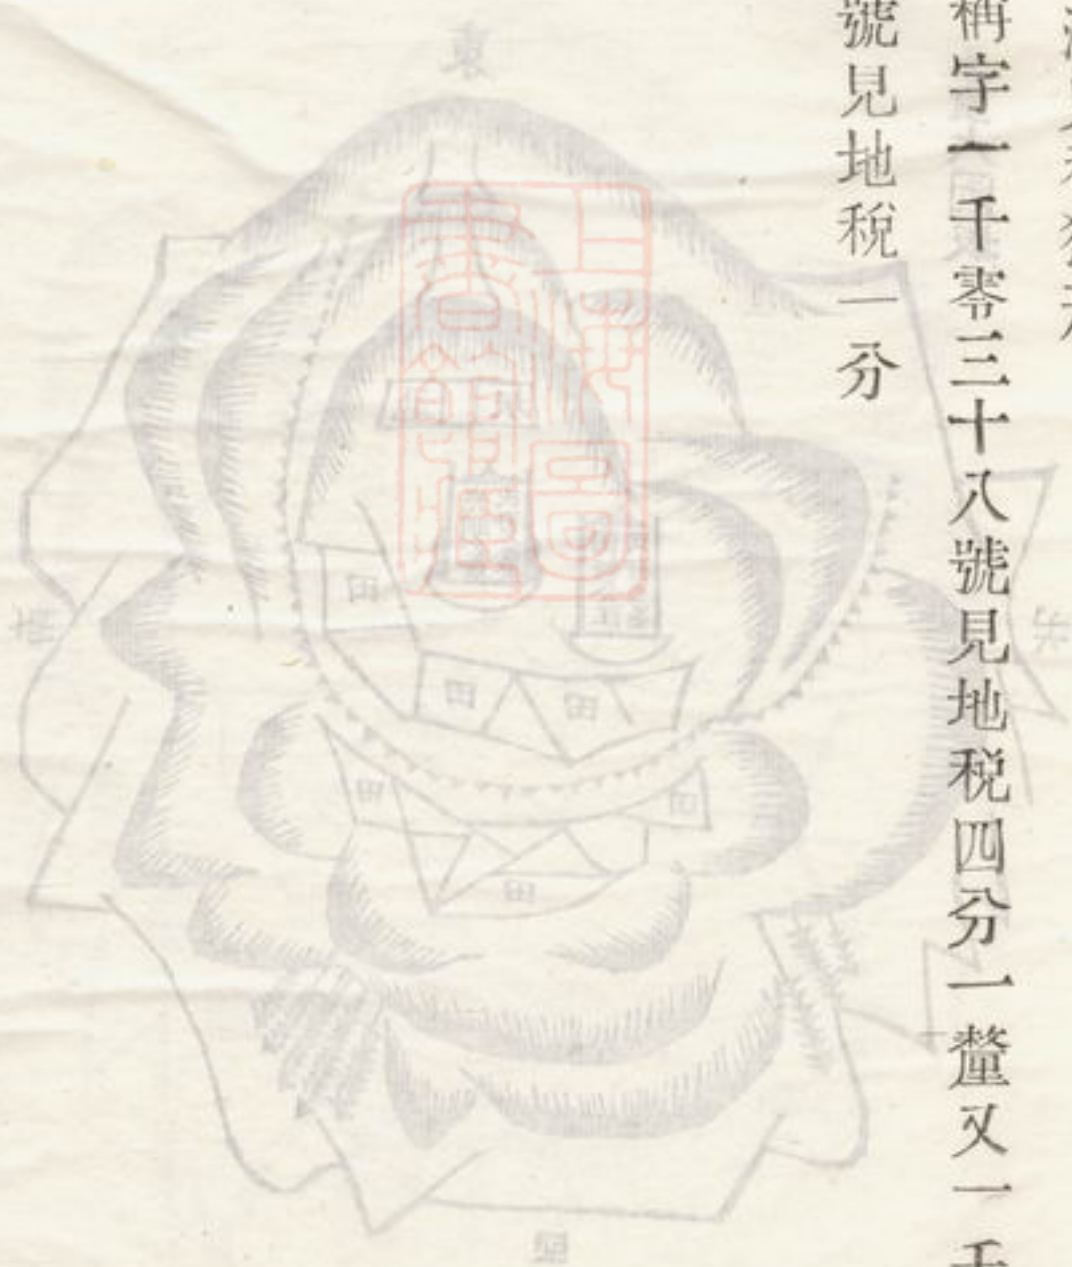 稱字一千零三十八號見地税四分一釐又一千
號見地稅一分
上海圖書館藏
東
田
田
田
田
田
田